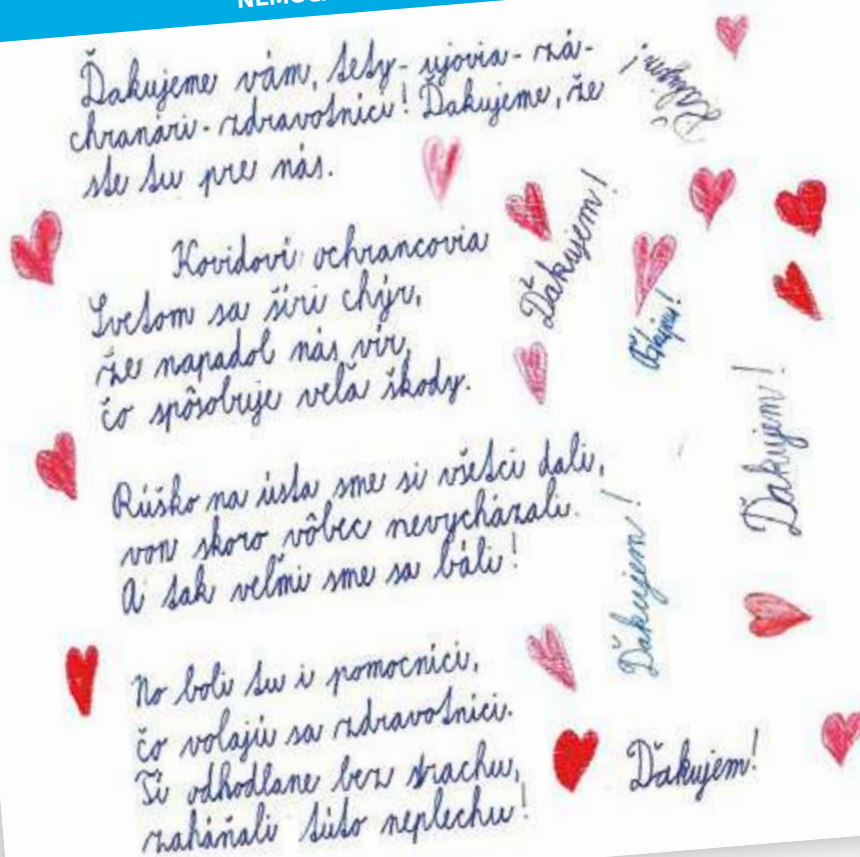 Ďakujeme vám, tety - ujovia - zá-
chranári - zdravotníci! Ďakujeme, že
ste tu pre nás.
Kovidoví ochrancovia
Svetom sa šíri chýr,
že napadol nás vír,
čo spôsobuje veľa škody.
Rúško na ústa sme si všetci dali,
von skoro vôbec nevycházali.
A tak veľmi sme sa báli!
No boli tu i pomocníci,
čo volajú sa zdravotníci.
Tí odhodlane bez strachu,
zaháňali túto neplechu!
Ďakujem!
Ďakujem!
Ďakujem!
Ďakujem!